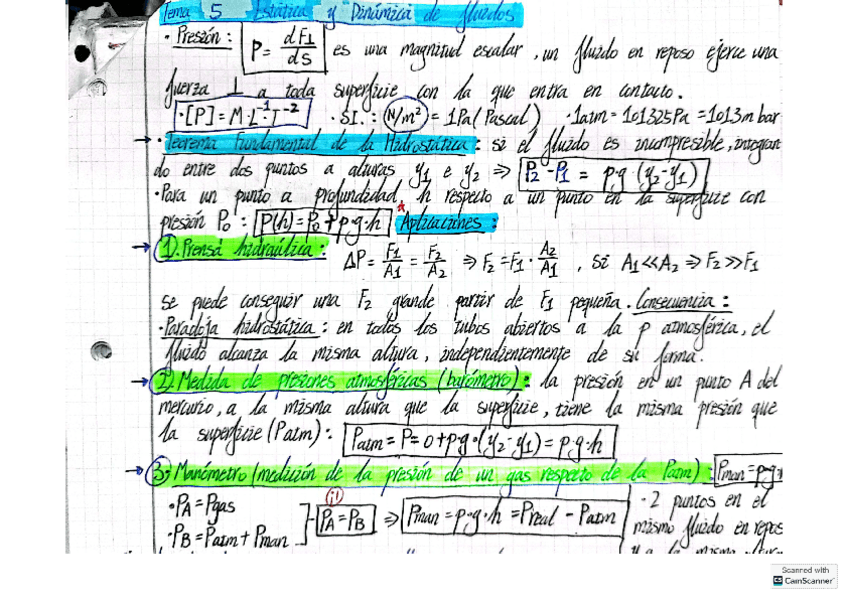 Tema 5 Estática y Dinámica de fluidos
· Presión: P = dF⊥/dS es una magnitud escalar, un fluido en reposo ejerce una
fuerza ⊥ a toda superficie con la que entra en contacto.
· [P] = M·L⁻¹·T⁻² · SI.: N/m² = 1Pa (Pascal) · 1atm = 101325Pa = 1013 m bar
→ · Teorema Fundamental de la Hidrostática: si el fluido es incompresible, integran
do entre dos puntos a alturas y1 e y2 ⇒ P2 - P1 = ρ·g·(y2-y1)
· Para un punto a profundidad h respecto a un punto en la superficie con
presión P0: P(h) = P0 + ρ·g·h * Aplicaciones:
→ 1). Prensa hidraúlica: ΔP = F1/A1 = F2/A2 ⇒ F2 = F1· A2/A1 , si A1<<A2 ⇒ F2>>F1
se puede conseguir una F2 grande partir de F1 pequeña. Consecuencia:
· Paradoja hidrostática: en todos los tubos abiertos a la p atmosférica, el
fluido alcanza la misma altura, independientemente de su forma.
→ 2). Medida de presiones atmosféricas (barómetro): la presión en un punto A del
mercurio, a la misma altura que la superficie, tiene la misma presión que
la superficie (Patm): Patm = P = 0 + ρ·g·(y2-y1) = ρ·g·h
→ 3). Manómetro (medición de la presión de un gas respecto de la Patm): Pman = ρ·g·
· PA = Pgas
· PB = Patm + Pman
¡! PA = PB ⇒ Pman = ρ·g·h = Preal - Patm
· 2 puntos en el
mismo fluido en repos
Scanned with
CS CamScanner